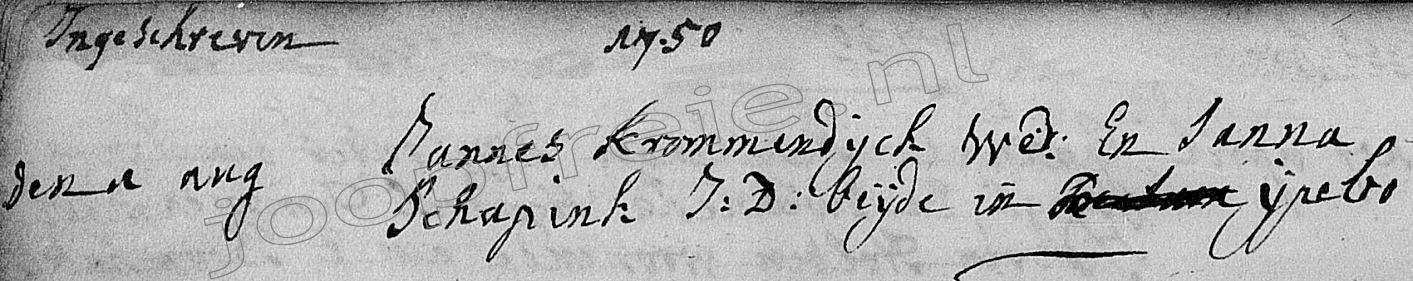 Ingeschreven 1750
Jannes Krommendijck Wed: En Janna
den aug
Schapink J: D: beijde in ijpelo
joopfreie.nl